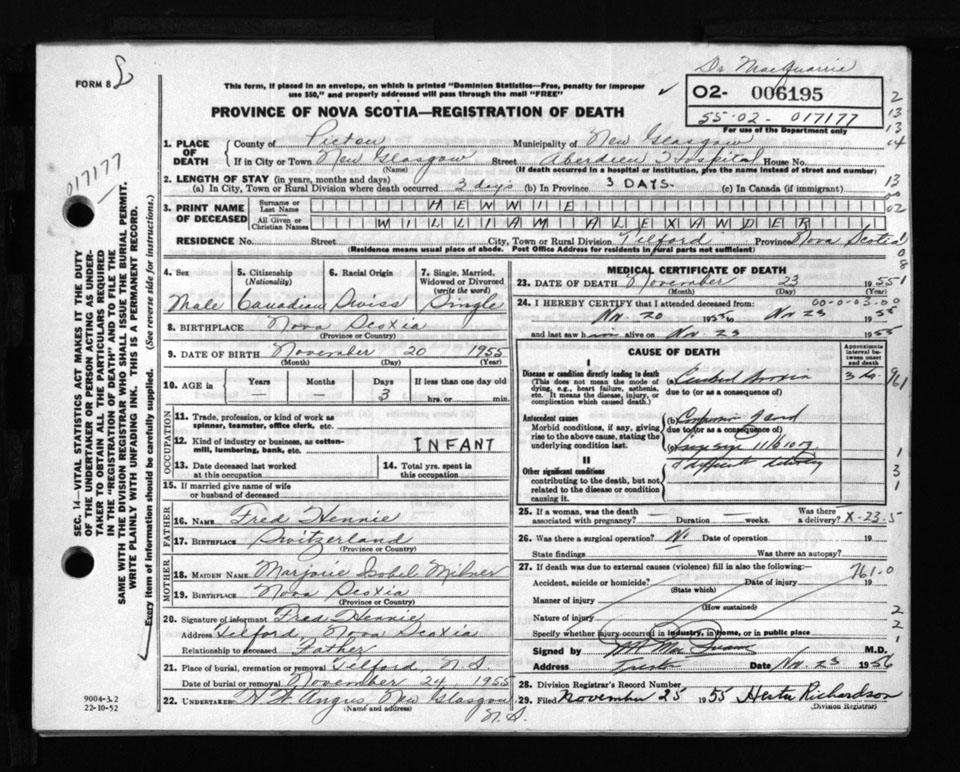 FORM 8
Dr MacQuarrie
This form, if placed in an envelope, on which is printed "Dominion Statistics—Free, penalty for improper
use $50," and properly addressed will pass through the mail "FREE"
✓
O2- 006195
55-02- 017177
For use of the Department only
PROVINCE OF NOVA SCOTIA—REGISTRATION OF DEATH
017177
SEC. 14—VITAL STATISTICS ACT MAKES IT THE DUTY
OF THE UNDERTAKER OR PERSON ACTING AS UNDER-
TAKER TO OBTAIN ALL THE PARTICULARS REQUIRED
IN THE "REGISTRATION OF DEATH" AND TO FILE THE
SAME WITH THE DIVISION REGISTRAR WHO SHALL ISSUE THE BURIAL PERMIT.
WRITE PLAINLY WITH UNFADING INK. THIS IS A PERMANENT RECORD.
Every item of information should be carefully supplied. (See reverse side for instructions.)
1. PLACE OF DEATH County of Pictou Municipality of New Glasgow
If in City or Town New Glasgow Street Aberdien Hospital House No.
(Name) (If death occurred in a hospital or institution, give the name instead of street and number)
2. LENGTH OF STAY (in years, months and days)
(a) In City, Town or Rural Division where death occurred 3 days (b) In Province 3 DAYS. (c) In Canada (if immigrant)
3. PRINT NAME OF DECEASED Surname or Last Name HENNIE
All Given or Christian Names WILLIAM ALEXANDER
RESIDENCE No. Street City, Town or Rural Division Telford Province Nova Scotia
(Residence means usual place of abode. Post Office Address for residents in rural parts not sufficient)
4. Sex 5. Citizenship (Nationality) 6. Racial Origin 7. Single, Married, Widowed or Divorced (write the word)
Male Canadian Swiss Single
8. BIRTHPLACE Nova Scotia
(Province or Country)
9. DATE OF BIRTH November 20 1955
(Month) (Day) (Year)
10. AGE in Years Months Days If less than one day old
3 hrs. or min.
OCCUPATION
11. Trade, profession, or kind of work as spinner, teamster, office clerk, etc.
12. Kind of industry or business, as cotton-mill, lumbering, bank, etc. INFANT
13. Date deceased last worked at this occupation 14. Total yrs. spent in this occupation
15. If married give name of wife or husband of deceased
FATHER
16. NAME Fred Hennie
17. BIRTHPLACE Switzerland
(Province or Country)
MOTHER
18. MAIDEN NAME Marjorie Isobel Milner
19. BIRTHPLACE Nova Scotia
(Province or Country)
20. Signature of informant Fred Hennie
Address Telford, Nova Scotia
Relationship to deceased Father
21. Place of burial, cremation or removal Telford, N.S
Date of burial or removal November 24 1955
22. UNDERTAKER H. W. Angus New Glasgow
(Name and address) N.S.
MEDICAL CERTIFICATE OF DEATH
23. DATE OF DEATH November 23 1955
(Month) (Day) (Year)
24. I HEREBY CERTIFY that I attended deceased from: 00-0-03-00
Nov. 20 1955 to Nov 23 1955
and last saw him alive on Nov 23 1955
CAUSE OF DEATH
Approximate interval between onset and death
I
Disease or condition directly leading to death (a)
(This does not mean the mode of dying, e.g., heart failure, asthenia, etc. It means the disease, injury, or complication which caused death.)
due to (or as a consequence of)
Antecedent causes (b)
Morbid conditions, if any, giving rise to the above cause, stating the underlying condition last.
due to (or as a consequence of)
(c) Large size
II
Other significant conditions
contributing to the death, but not related to the disease or condition causing it.
difficult delivery
25. If a woman, was the death associated with pregnancy? Duration weeks. Was there a delivery? X-23.5
26. Was there a surgical operation? No Date of operation 19
State findings Was there an autopsy?
27. If death was due to external causes (violence) fill in also the following:— 761.0
Accident, suicide or homicide? Date of injury 19
(State which)
Manner of injury
(How sustained)
Nature of injury
Specify whether injury occurred in industry, in home, or in public place
Signed by M.D.
Address Date Nov. 23 1956
28. Division Registrar's Record Number
29. Filed November 25 1955 Hester Richardson
(Division Registrar)
9004-3.2
22-10-52